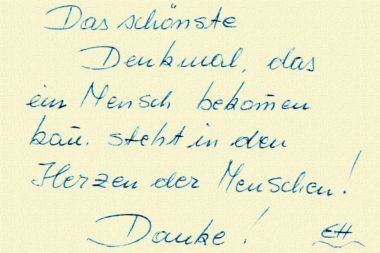 Das schönste
Denkmal, das
ein Mensch bekom̄en
kan̄, steht in den
Herzen der Menschen!
Danke! EH